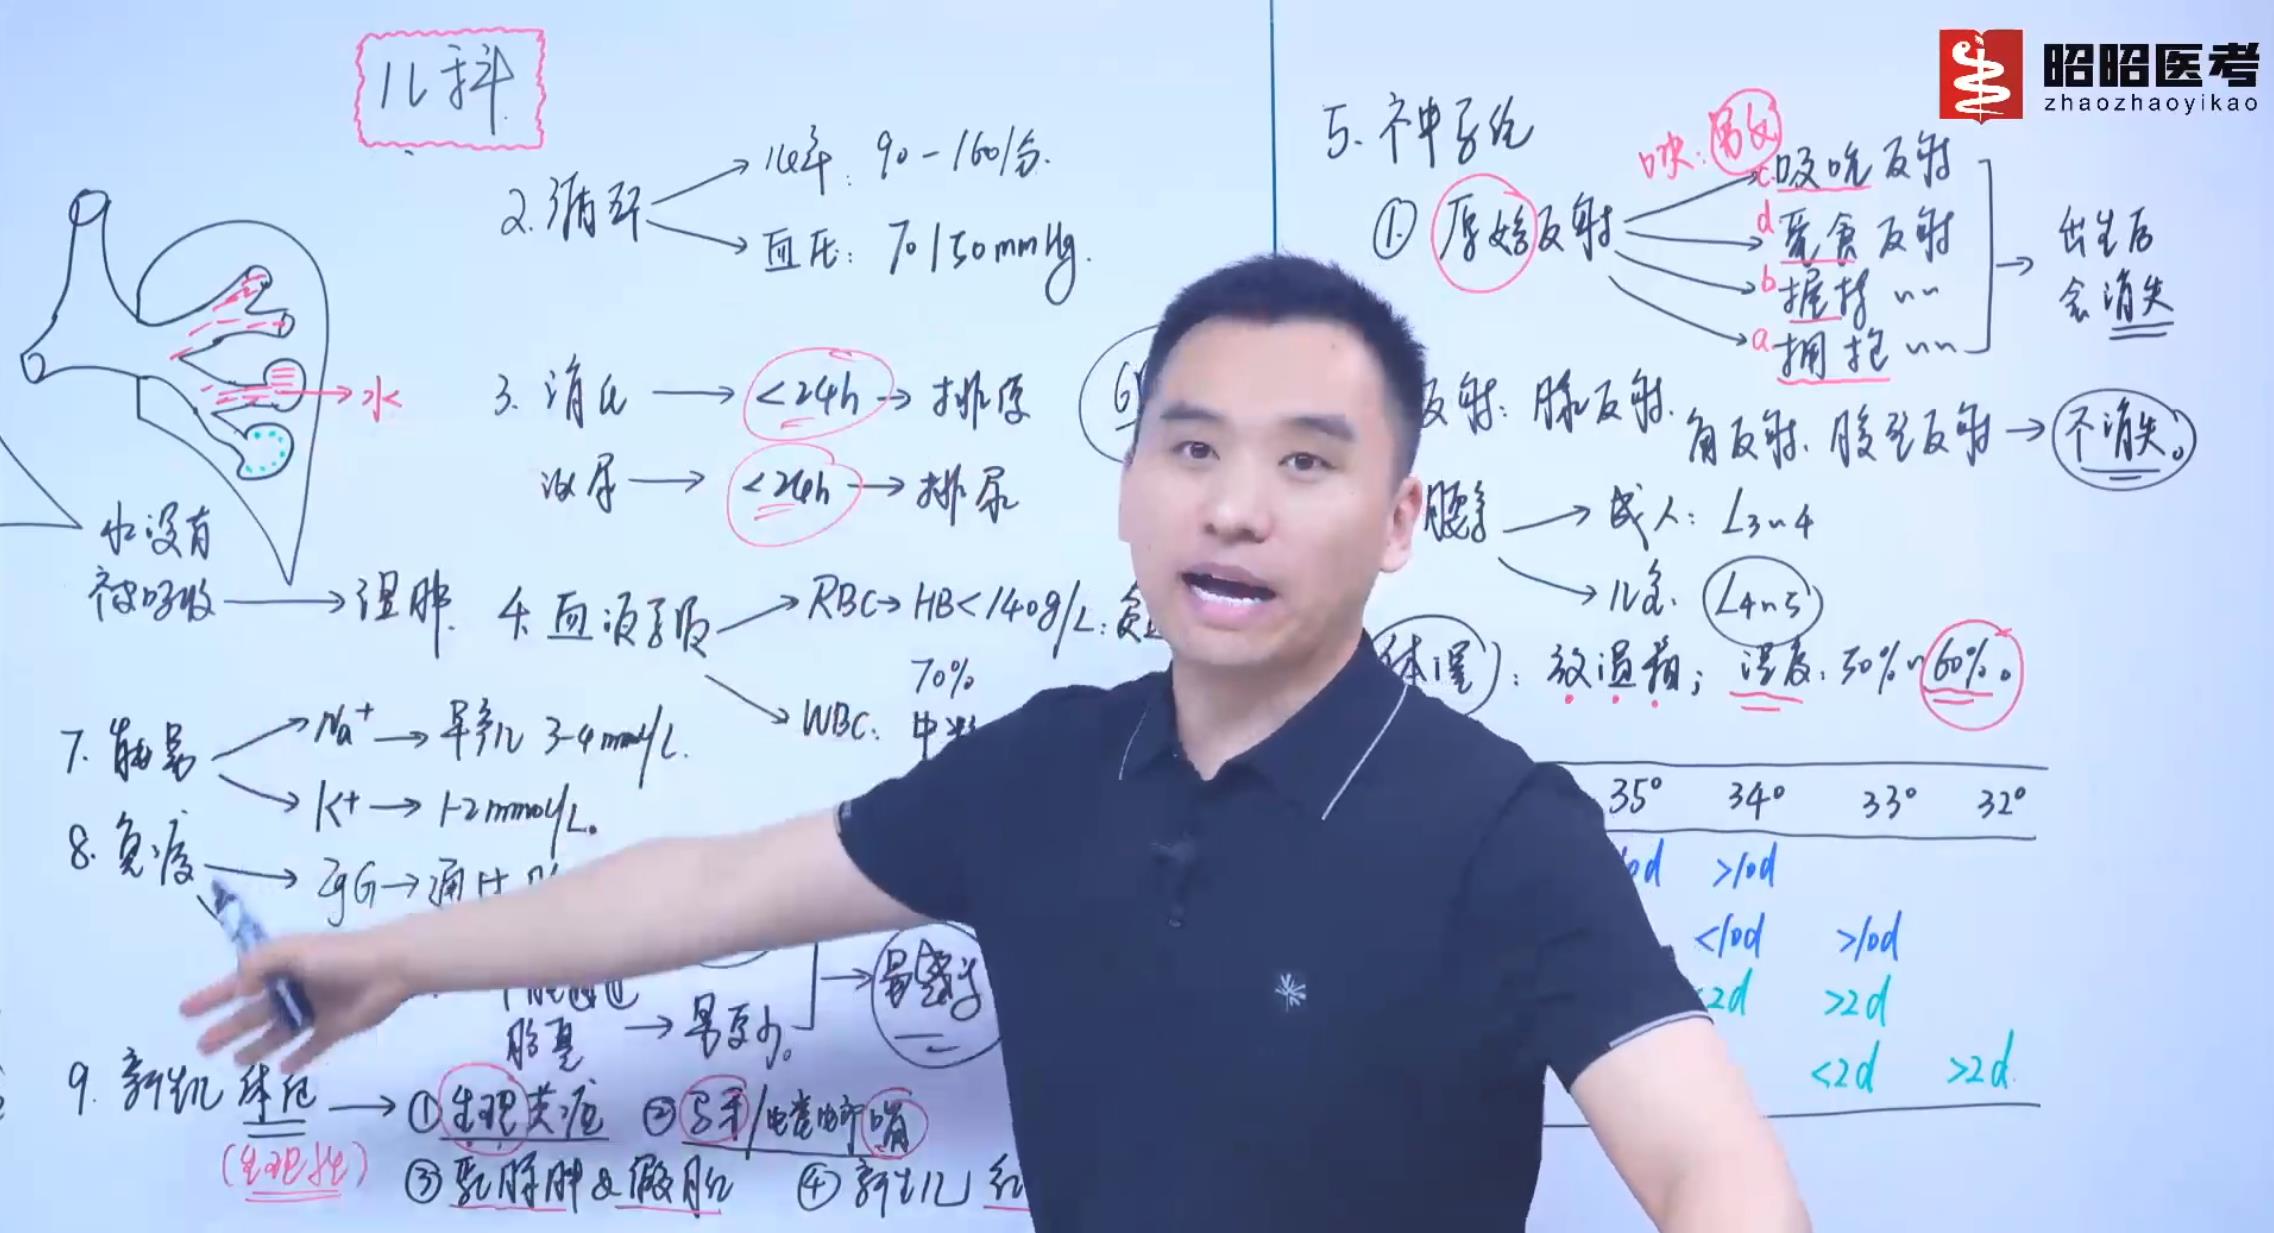 昭昭医考
zhaozhaoyikao
儿科
2. 循环
心率: 90-160/分.
血压: 70/50mmHg.
3. 消化 → <24h → 排
泌尿 → <24h → 排尿
水
水没有
被吸收 → 湿肺.
4. 血液系统
RBC → HB<140g/L:
WBC: 70%
中
7. 能量
Na+ → 早产儿 3-4mmol/L.
K+ → 1-2mmol/L.
8. 免疫
IgG → 通过
不能通过
胎盘 → 易
易感染
9. 新生儿 体征
(生理性)
→ ① 生理黄疸 ② 马牙/
③ 乳腺肿& ④ 新生儿 红
5. 神系统
口诀:
① 原始反射
c 吸吮反射
d 觅食反射
b 握持 ""
a 拥抱 ""
出生后
会消失
反射: 腹反射.
角反射、膝反射 → 不消失。
腰穿
成人: L3~4
儿童: L4~5
体温): 放温箱; 湿度: 50%~60%。
35° 34° 33° 32°
>10d
<10d >10d
2d >2d
<2d >2d